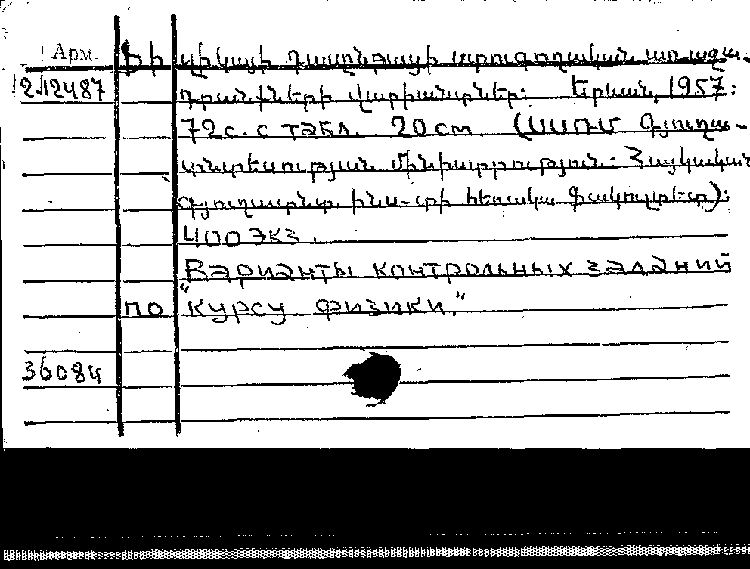 Арм. Ֆիզիկայի դասընթացի ստուգողական առաջա-
212487 դրանքների վարիանտներ: Երևան, 1957:
72с. с табл. 20cm. (ՍՍՌՄ Գյուղա-
տնտեսության մինիստրություն. Հայկական
գյուղատնտ. ինս-տի հեռակա ֆակուլտետ):
400 экз.
Варианты контрольных заданий
по "курсу физики."
36084